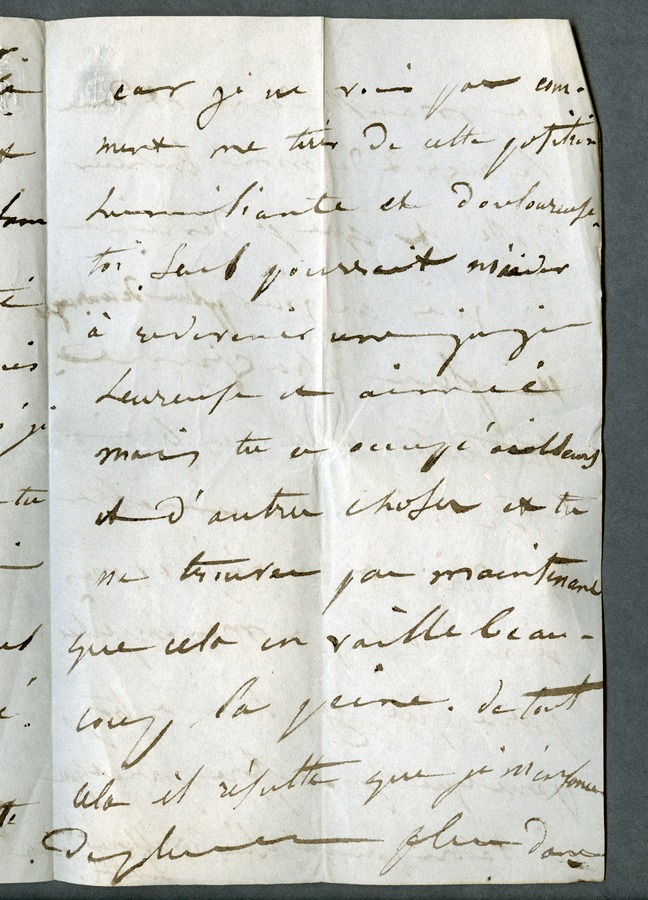 car je ne vois pas com-
ment me tirer de cette position
humiliante et douloureuse.
toi seul pourrait m'aider
à redevenir une
heureuse et aimée
mais tu es occupé ailleurs
et d'autres choses et tu
ne trouves pas maintenant
que cela en vaille beau-
coup la peine. de tout
cela il résulte que je m'enfonce
de plus en plus dans